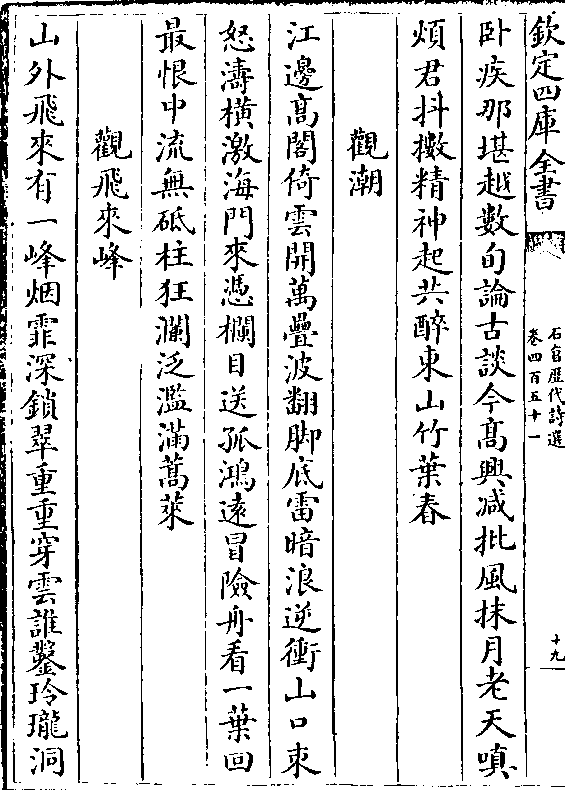 欽定四庫全書
石倉歷代詩選
卷四百五十一
十九
卧疾那堪越數旬論古談今髙興减批風抹月老天嗔
煩君抖擻精神起共醉東山竹葉春
觀潮
江邊髙閣倚雲開萬疊波翻脚底雷暗浪逆衝山口束
怒濤橫激海門來憑欄目送孤鴻遠冒險舟看一葉回
最恨中流無砥柱狂瀾泛濫滿蒿萊
觀飛來峰
山外飛來有一峰烟霏深鎖翠重重穿雲誰鑿玲瓏洞